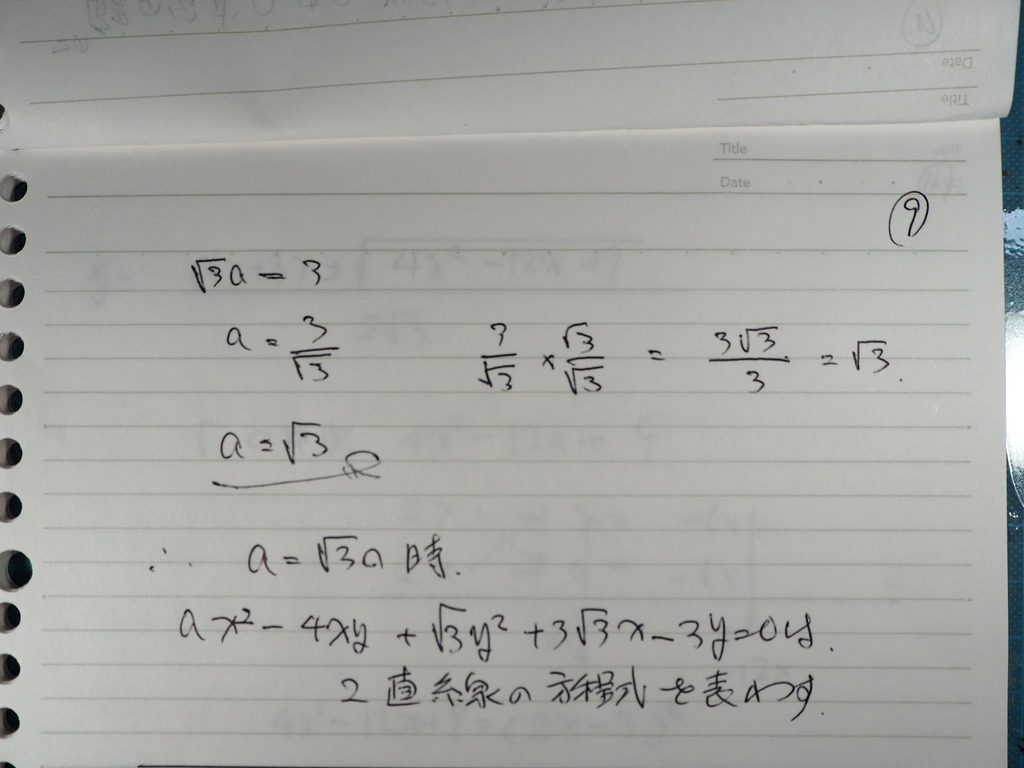 Date
Title
Title
Date
⑨
√3a = 3
a = 3/√3   3/√3 × √3/√3 = 3√3/3 = √3.
a = √3
∴ a = √3の時.
ax² - 4xy + √3y² + 3√3x - 3y = 0は.
2直線の方程式を表わす.